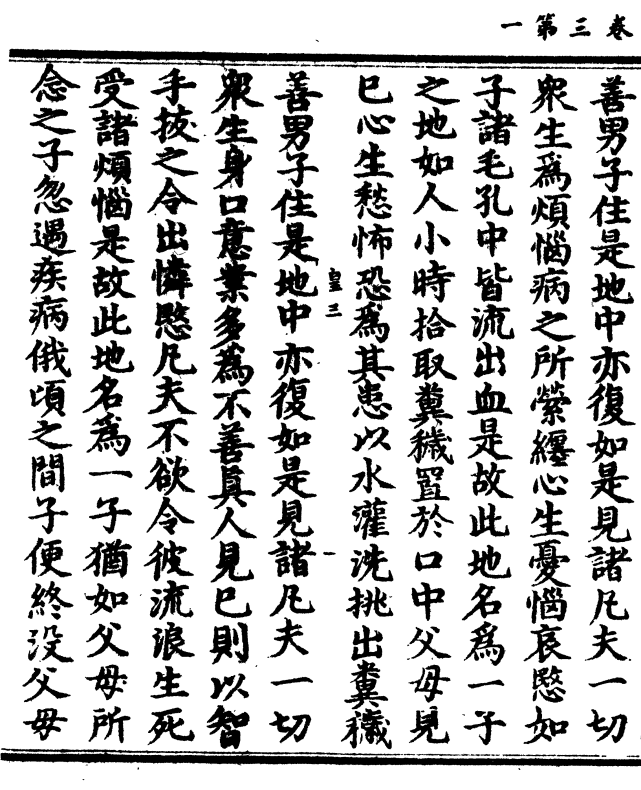 卷三第一
善男子住是地中亦復如是見諸凡夫一切
衆生爲煩惱病之所縈纏心生憂惱哀愍如
子諸毛孔中皆流出血是故此地名爲一子
之地如人小時拾取糞穢置於口中父母見
已心生愁怖恐爲其患以水灌洗挑出糞穢
皇三
一
善男子住是地中亦復如是見諸凡夫一切
衆生身口意業多爲不善真人見已則以智
手拔之令出憐愍凡夫不欲令彼流浪生死
受諸煩惱是故此地名爲一子猶如父母所
念之子忽遇疾病俄頃之間子便終没父母